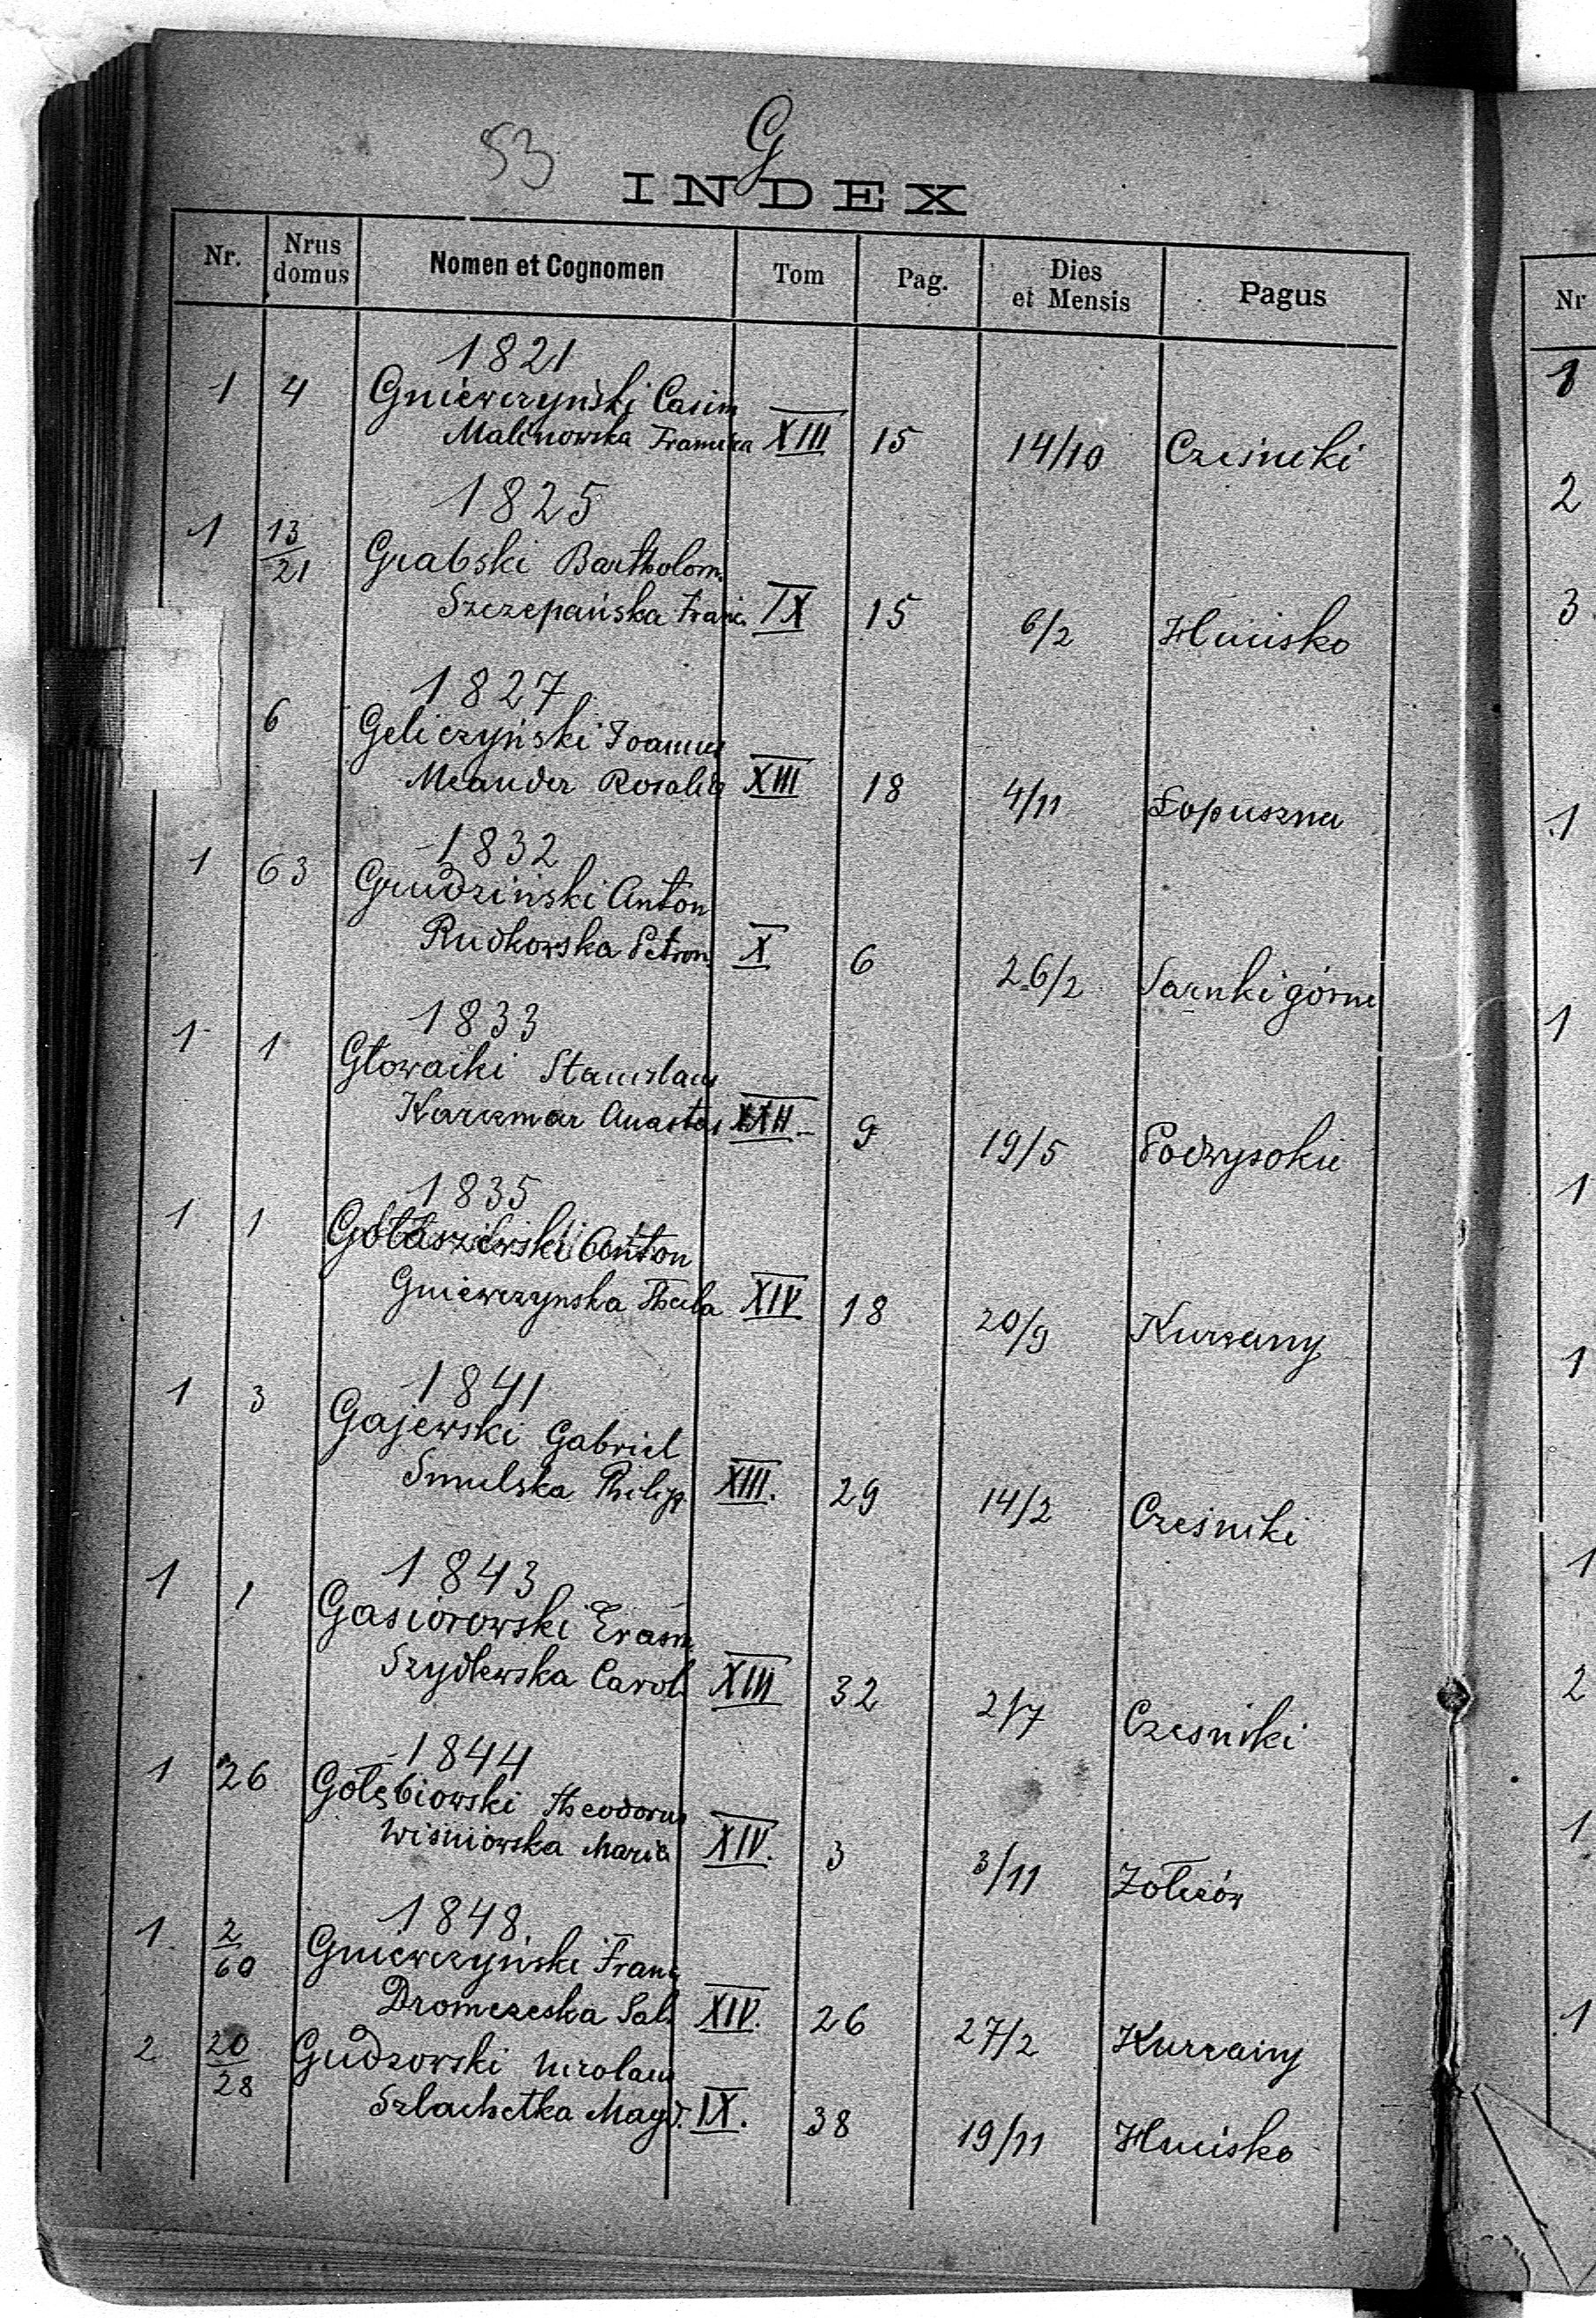 53
G
INDEX
Nr. Nrus domus Nomen et Cognomen Tom Pag. Dies et Mensis Pagus
1821
1 4 Gniewczyński Casim
Malinowska XIII 15 14/10 Cześniki
1825
1 13/21 Grabski Bartholom.
Szczepańska Franc. IX 15 6/2 Hucisko
1827
6 Geliczyński Joannes
Meander Rosalia XIII 18 4/11 Łopuszna
1832
1 63 Grudziński Anton
Rudkowska Petron. X 6 26/2 Sarnki górne
1833
1 1 Głowacki Stanislaus
Karczmar Anastas XXII. 9 19/5 Podwysokie
1835
1 1 Gołaszewski Anton
Gniewczynska Thecla XIV 18 20/9 Kurzany
1841
1 3 Gajewski Gabriel
Smulska Philip. XIII. 29 14/2 Cześniki
1843
1 1 Gasiorowski Erasm.
Szydłowska Carol. XIII 32 2/7 Cześniki
1844
1 26 Gołębiowski Theodorus
Wiśniowska Maria XIV. 3 3/11 Żołczów
1848
1 2/60 Gniewczyński Franc
Sal. XIV. 26 27/2 Kurzany
2 20/28 Gudzowski Nicolaus
Szlachetka Magd. IX. 38 19/11 Hucisko
Nr
1
2
3
1
1
1
1
1
2
1
1